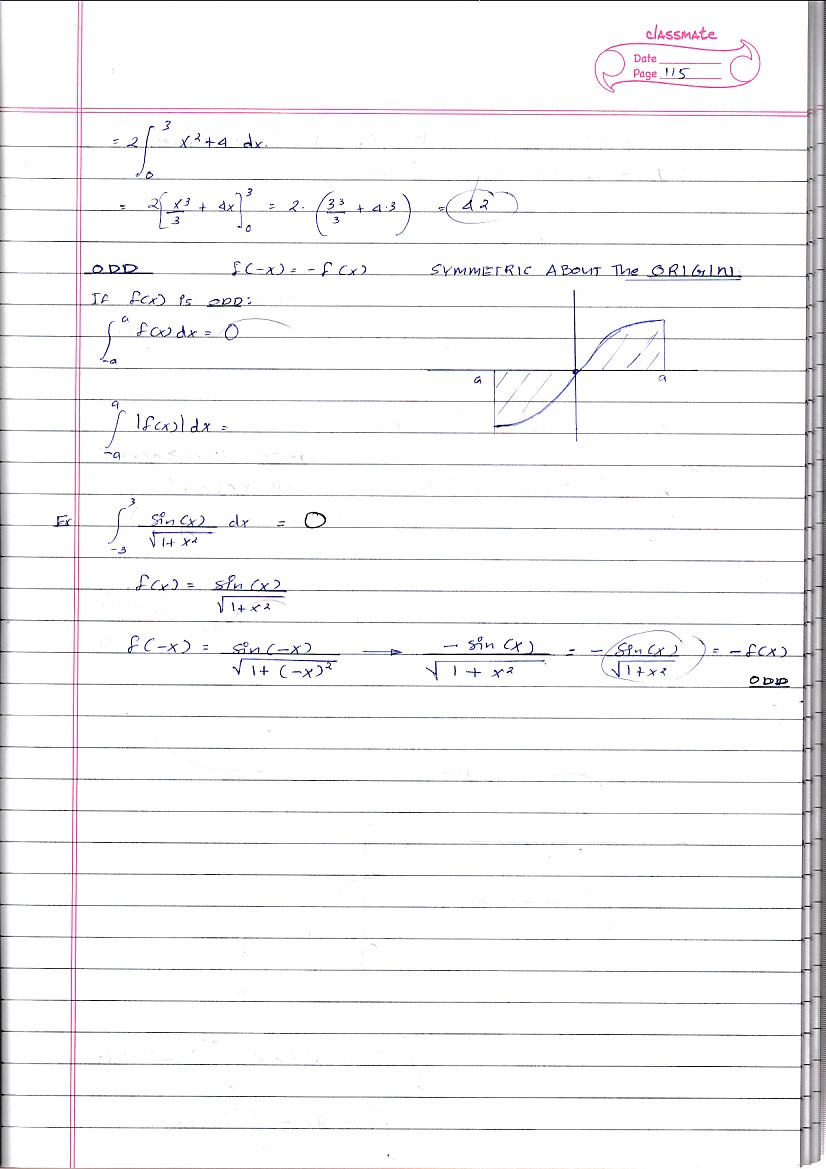 classmate
Date
Page 115
= 2∫₀³ x²+4 dx.
= 2[x³/3 + 4x]₀³ = 2·(3³/3 + 4·3) = 42
ODD f(-x) = -f(x) SYMMETRIC ABOUT The ORIGIN.
If f(x) is ODD:
∫₋ₐᵃ f(x) dx = 0
a a
∫₋ₐᵃ |f(x)| dx =
Ex ∫₋₃³ sin(x)/√(1+x²) dx = 0
f(x) = sin(x)/√(1+x²)
f(-x) = sin(-x)/√(1+(-x)²) → -sin(x)/√(1+x²) = -sin(x)/√(1+x²) = -f(x)
ODD